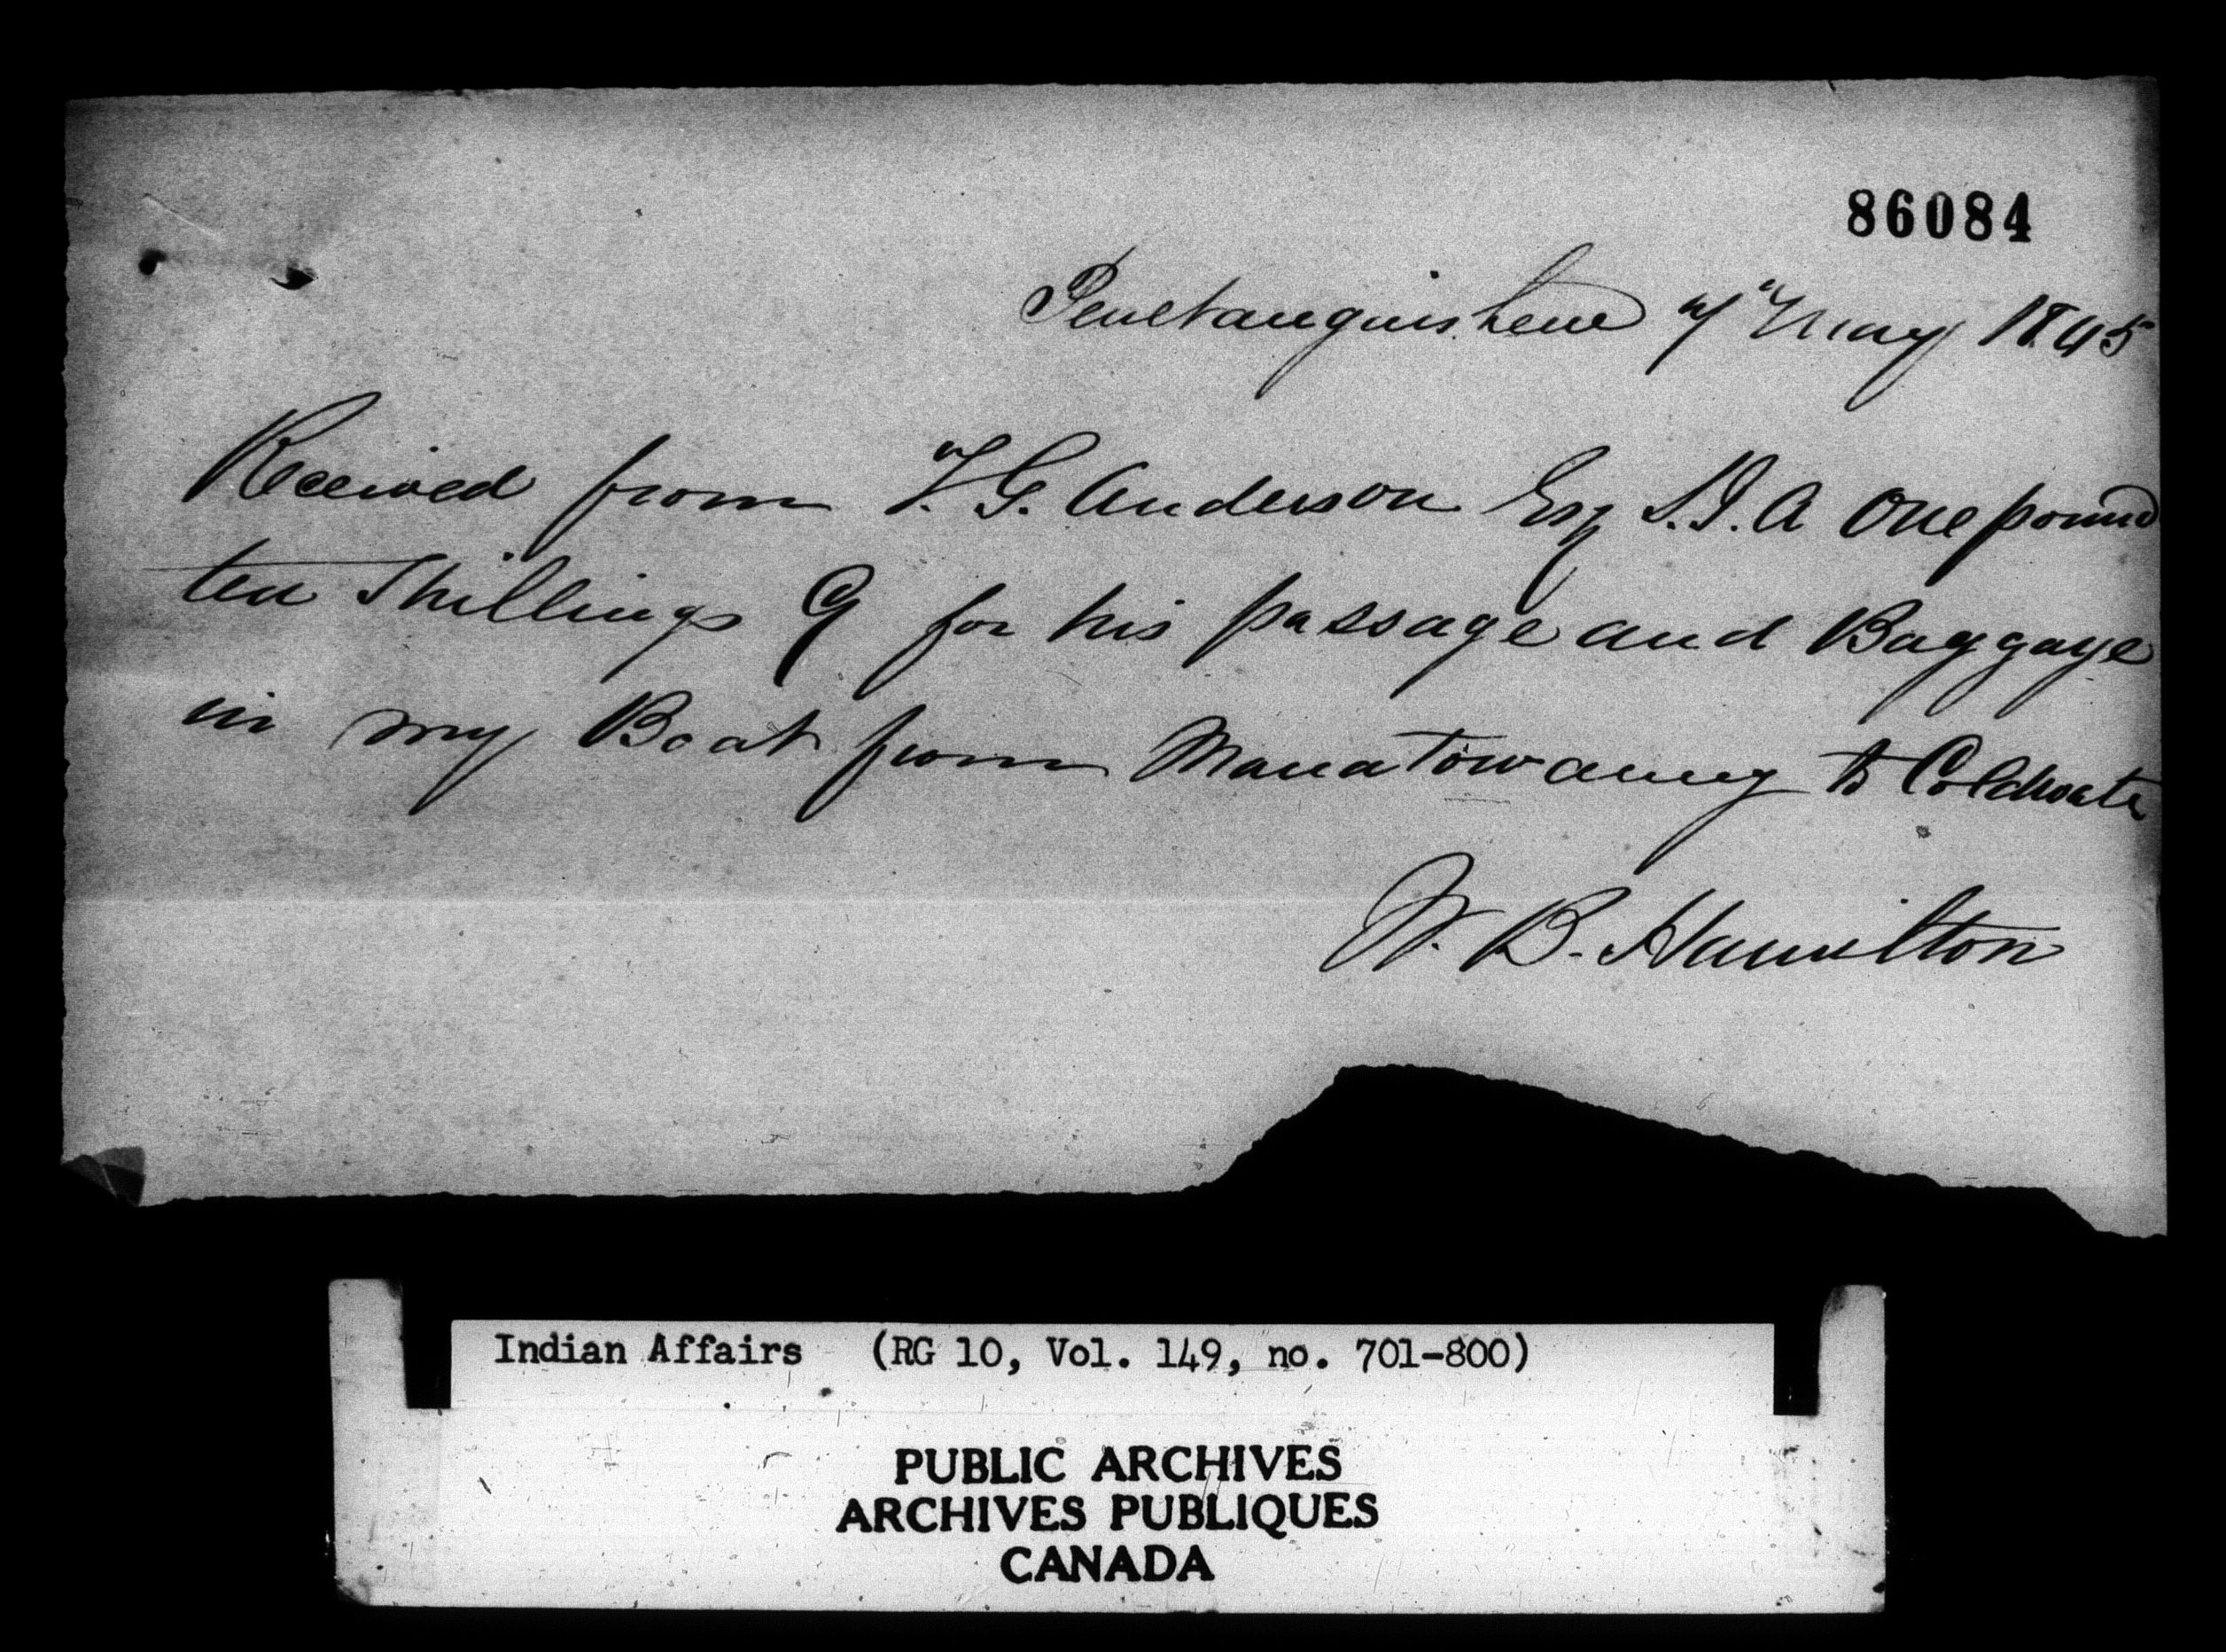 86084
Penetanguishene 7" May 1845
Received from T. G. Anderson Esq S.I.A One pound
ten Shillings Cy for his passage and Baggage
in my Boat from Manatowaning to Coldwater
W. B. Hamilton
Indian Affairs (RG 10, Vol. 149, no. 701-800)
PUBLIC ARCHIVES
ARCHIVES PUBLIQUES
CANADA